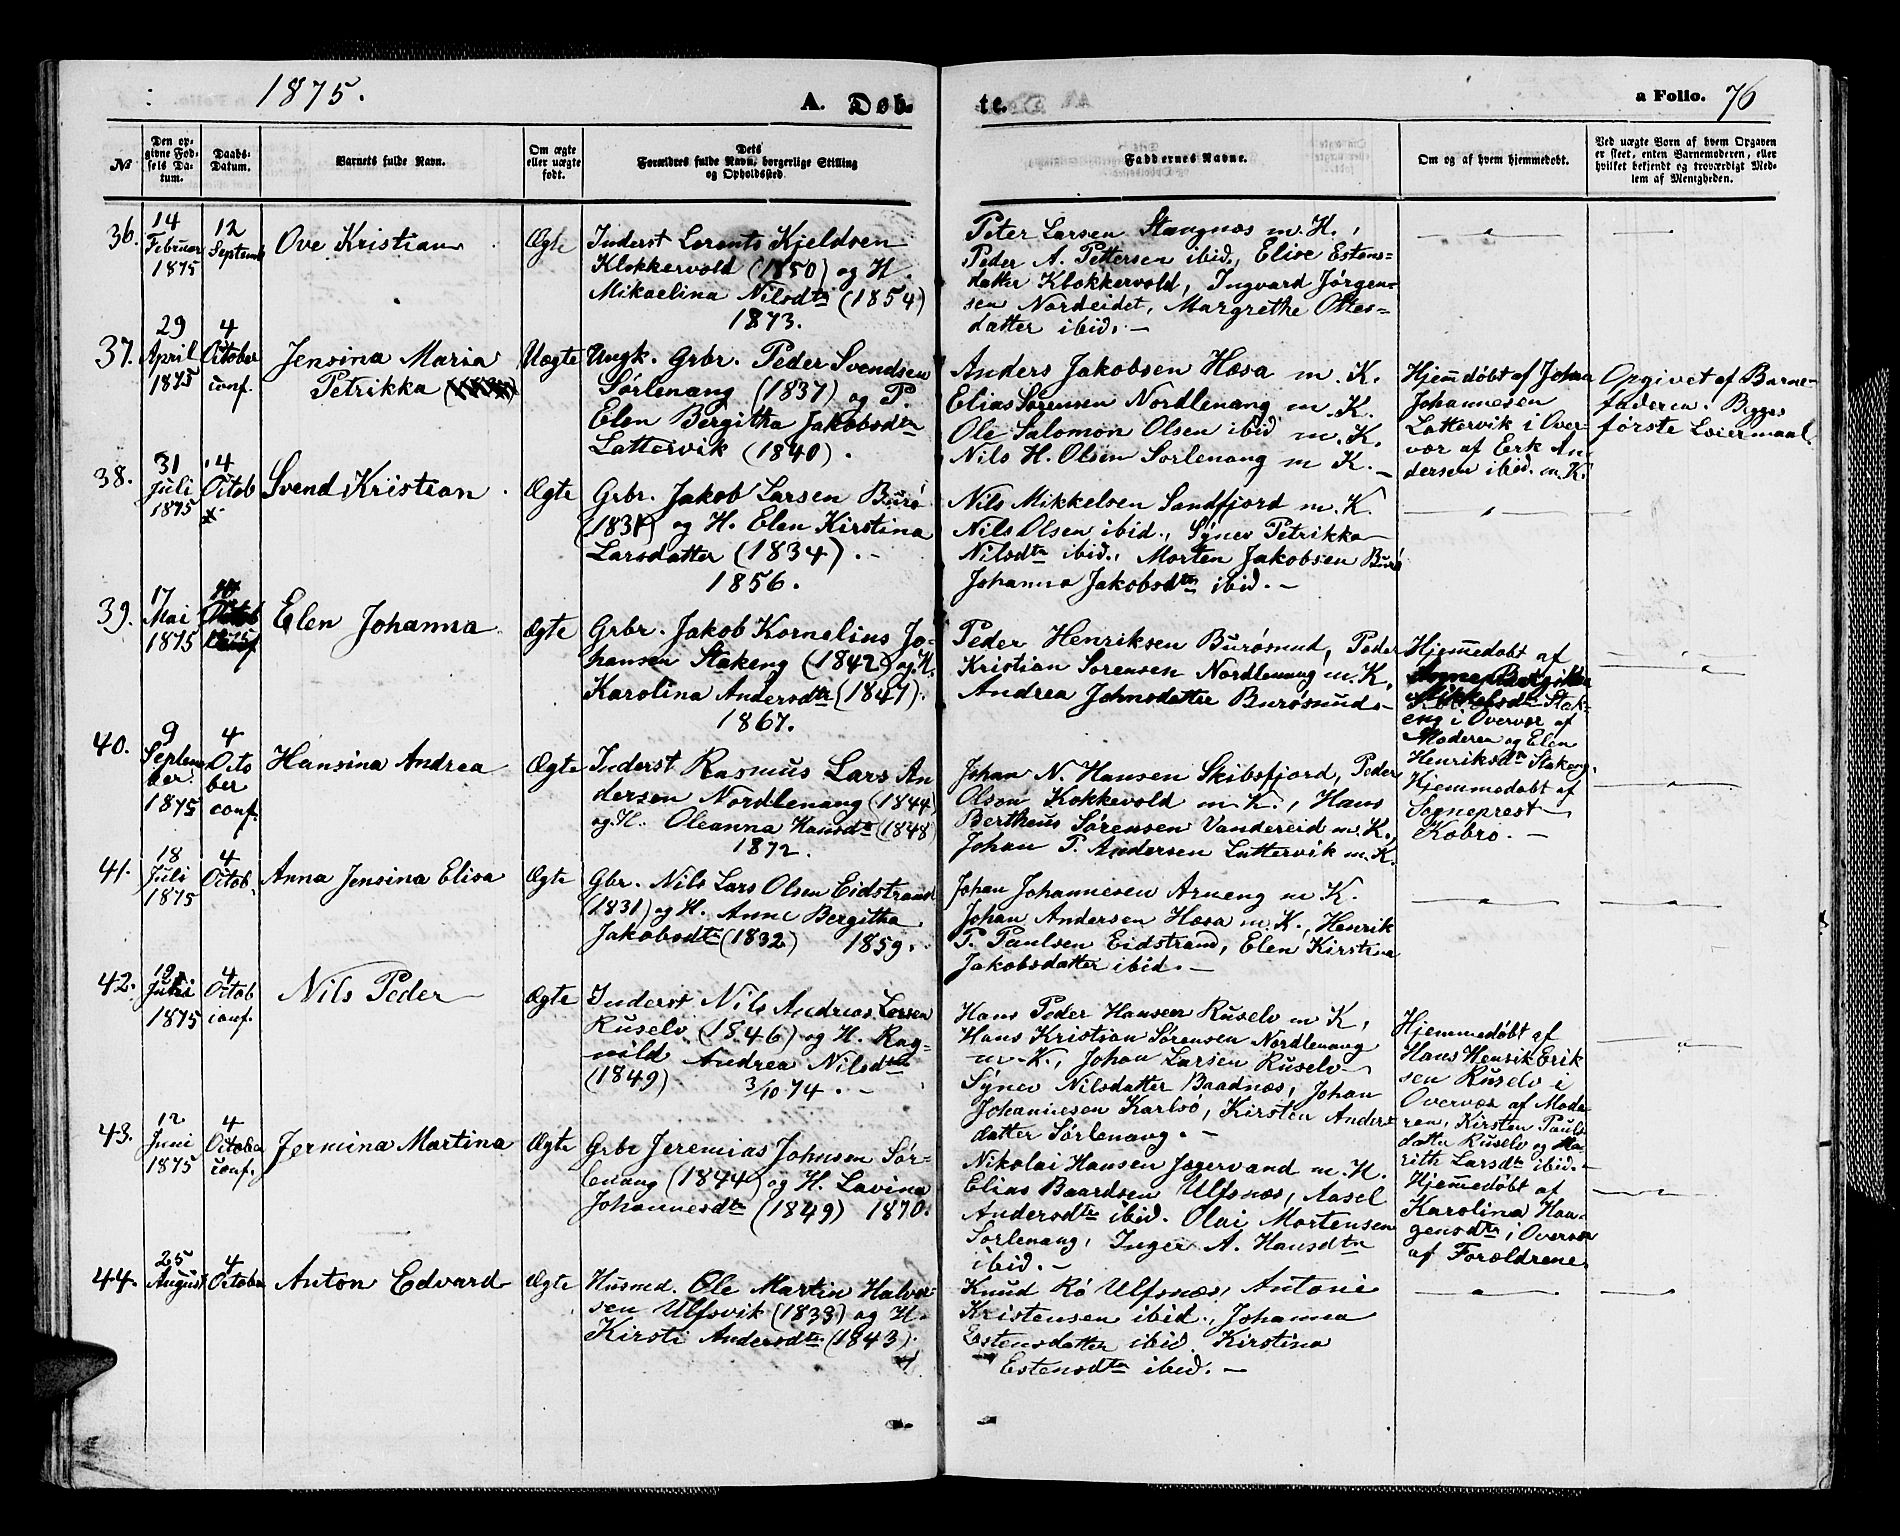 1875.
A. Døb-
te.
a Folio. 76
No
Den op-
givne Fød-
sels Da-
tum.
Daabs-
Datum.
Barnets fulde Navn.
Om ægte
eller uægte
født.
Dets
Forældres fulde Navn, borgerlige Stilling
og Opholdssted.
Faddernes Navne.
Om og af hvem hjemmedøbt.
Ved uægte Børn af hvem Opgaven
er skeet, enten Barnemoderen, eller
hvilket bekjendt og troværdigt Med-
lem af Menigheden.
36.
14
Februar
1875
12
Septemb
Ove Kristian
Ægte
Inderst Lorents Kjeldsen
Klokkervold (1850) og H.
Mikaelina Nilsdtr (1854)
1873.
Peter Larsen Stangnæs m. H.,
Peder A. Pettersen ibid., Elise Estens-
datter Klokkervold, Ingvard Jørgen-
sen Nordeidet, Margrethe Ottes-
datter ibid. —
37.
29
April
1875
4
October
conf.
Jensina Maria
Petrikka
Uægte
Ungk. Grbr. Peder Svendsen
Sørlenang (1837) og P.
Elen Bergitha Jakobsdtr
Lattervik (1840).
Anders Jakobsen Hæsa m. K.
Elias Sørensen Nordlenang m. K.
Ole Salomon Olsen ibid m. K.
Nils H. Olsen Sørlenang m K. —
Hjemdøbt af Johan
Johannesen
Lattervik i Over-
vær af Erk An-
dersen ibid. m. K.
Opgivet af Barne-
faderen. Begges
første Leiermaal.
38.
31
Juli
1875
4
Octob
Svend Kristian
Ægte
Grbr. Jakob Larsen Burø
(1831) og H. Elen Kirstina
Larsdatter (1834). -
1856.
Nils Mikkelsen Sandfjord m. K
Nils Olsen ibid., Synev Petrikka
Nilsdtr ibid., Morten Jakobsen Burø
Johanna Jakobsdtr ibid. —
39.
17
Mai
1875
Elen Johanna
Ægte
Grbr. Jakob Kornelius Jo-
hansen Stakeng (1842) og H.
Karolina Andersdtr (1847).
1867.
Peder Henriksen Burøsund, Peder
Kristian Sørensen Nordlenang m. K,
Andrea Johnsdatter Burøsund.
Hjemmedøbt af
Mikkelsdtr Stak-
eng i Overvær af
Moderen og Elen
Henriksdtr Stakeng.
40.
9
Septem
ber
1875
4
Octo
ber
conf.
Hansina Andrea
Ægte
Inderst Rasmus Lars An
dersen Nordlenang (1844)
og H. Oleanna Hansdtr (1848)
1872.
Johan N. Hansen Skibsfjord, Peder
Olsen Kokkevold m K., Hans
Bertheus Sørensen Vandereid m. K.,
Johan P. Andersen Lattervik m. K.
Hjemmedøbt af
Sogneprest
Kobro. —
41.
18
Juli
1875
4
Octob.
Anna Jensina Elisa
Ægte
Gbr. Nils Lars Olsen Eidstrand
(1831) og H. Anne Bergitha
Jakobsdtr (1832) 1859.
Johan Johannesen Arneng m K.
Johan Andersen Hæsa m. K., Henrik
P. Paulsen Eidstrand, Elen Kirstina
Jakobsdatter ibid. —
42.
Juli
1875
4
Octob
conf.
Nils Peder
Ægte
Inderst Nils Andreas Larsen
Ruselv (1846) og H. Rag-
nild Andrea Nilsdtr
(1849) 3/10 74. -
Hans Peder Hansen Ruselv m K,
Hans Kristian Sørensen Nordlenang
m. K., Johan Larsen Ruselv
Synev Nilsdatter Baadnæs, Johan
Johannesen Karlsø, Kirsten Anders
datter Sørlenang. —
Hjemmedøbt af
Hans Henrik Erik
sen Ruselv i
Overvær af Mode
ren, Kirsten Pauls
datter Ruselv og Ma-
rith Larsdtr ibid. —
43.
12
Juni
1875
4
October
conf.
Jermina Martina
Ægte
Grbr Jeremias Johnsen Sør-
lenang (1844) og H. Lavina
Johannesdtr (1849) 1870.
Nikolai Hansen Jægervand m. H.
Elias Baardsen Ulfsnæs, Aasel
Andersdtr ibid. Olai Mortensen
Sørlenang, Inger A. Hansdtr
ibid. —
Hjemmedøbt af
Karolina Haa-
gensdtr i Overvær
af Forældrene
44.
25
August
4
October
Anton Edvard
Ægte
Husmd. Ole Martin Halvor
sen Ulfsvik (1839) og H.
Kirsti Andersdtr (1843).
Knud Rø Ulfsnæs, Antoni
Kristensen ibid., Johanna
Estensdatter ibid. Kirstina
Estensdtr ibid. —